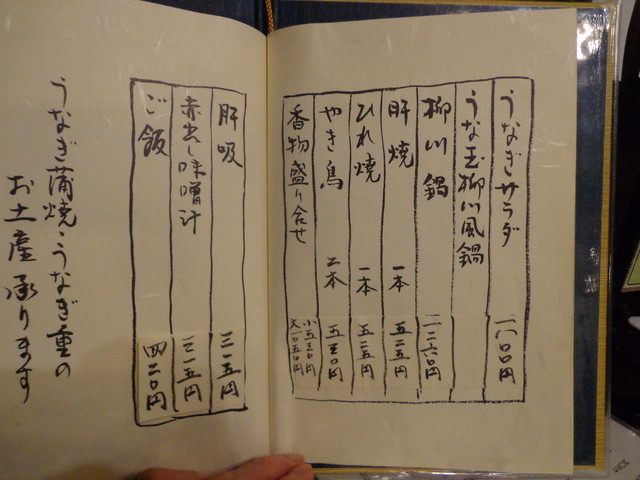 うなぎサラダ 一八〇〇円
うな玉柳川風鍋
柳川鍋 一二六〇円
肝焼 一本 五二五円
ひれ焼 一本 五二五円
やき鳥 二本 五二〇円
香物盛り合せ 小五二〇円 大一〇五〇円
肝吸 三一五円
赤出し味噌汁 三一五円
ご飯 四二〇円
うなぎ蒲焼・うなぎ重の
お土産承ります